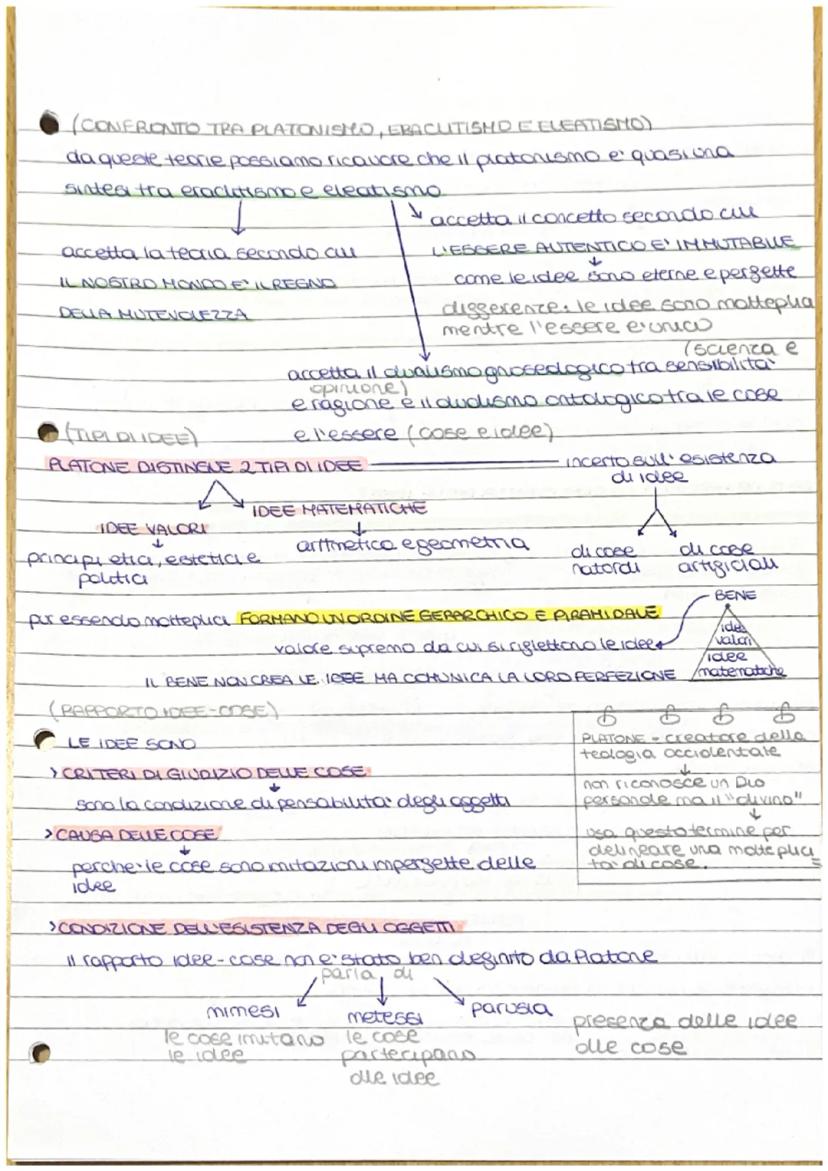 (CONFRONTO TRA PLATONISMO, ERACLITISMO E ELEATISMO)
da queste teorie possiamo ricavare che il platonismo e' quasi una
sintesi tra eraclitismo e eleatismo
accetta la teoria secondo cui
IL NOSTRO MONDO E' IL REGNO
DELLA MUTEVOLEZZA
accetta il concetto secondo cui
L'ESSERE AUTENTICO E' IMMUTABILE
come le idee sono eterne e perfette
differenze: le idee sono molteplici
mentre l'essere e' unico
(scienza e
accetta il dualismo gnoseologico tra sensibilita'
opinione)
e ragione e il dualismo ontologico tra le cose
e l'essere (cose e idee)
(TIPI DI IDEE)
PLATONE DISTINGUE 2 TIPI DI IDEE
incerto sull'esistenza
di idee
IDEE VALORI
principi etici, estetici e
politici
IDEE MATEMATICHE
aritmetica e geometria
di cose
naturali
di cose
artificiali
pur essendo molteplici FORMANO UN ORDINE GERARCHICO E PIRAMIDALE
BENE
valore supremo da cui si riflettono le idee
idee
valori
idee
matematiche
IL BENE NON CREA LE IDEE MA COMUNICA LA LORO PERFEZIONE
(RAPPORTO IDEE-COSE)
LE IDEE SONO
> CRITERI DI GIUDIZIO DELLE COSE
sono la condizione di pensabilita' degli oggetti
> CAUSA DELLE COSE
perche' le cose sono imitazioni imperfette delle
idee
PLATONE = creatore della
teologia occidentale
non riconosce un Dio
personale ma il "divino"
usa questo termine per
delineare una moltepli
ta' di cose.
> CONDIZIONE DELL'ESISTENZA DEGLI OGGETTI
il rapporto idee-cose non e' stato ben definito da Platone
parla di
mimesi
le cose imitano
le idee
metessi
le cose
partecipano
alle idee
parusia
presenza delle idee
alle cose